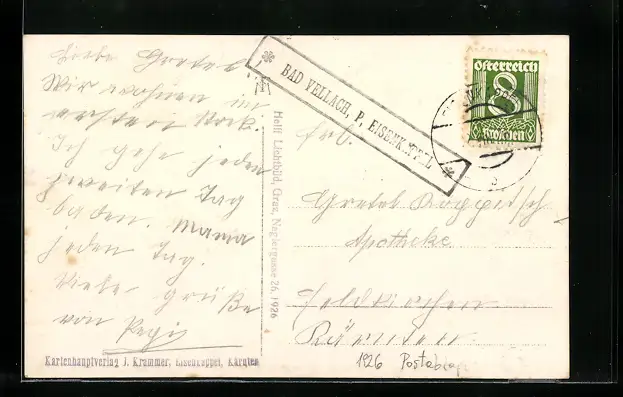 Liebe Gretel!
Wir wohnen im
ersten Stock.
Ich gehe jeden
zweiten Tag
baden. Mama
jeden Tag.
Viele Grüße
von
Kartenhauptverlag J. Krammer, Eisenkappel, Kärnten
Helff Lichtbild, Graz, Naglergasse 26, 1926
BAD VELLACH, P. EISENKAPPEL
Österreich
8
Groschen
Frl.
Gretel
Apotheke
Feldkirchen
Kärnten
1926